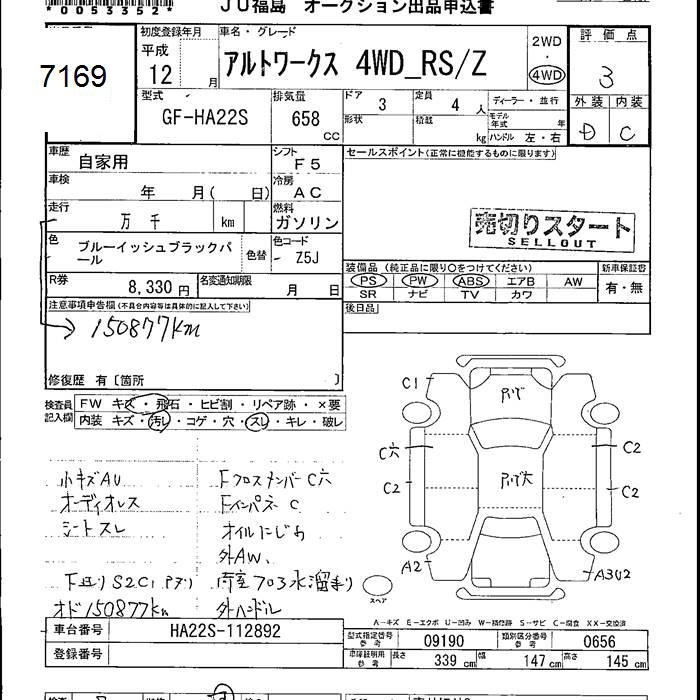 *0053352*
JU福島 オークション出品申込書
7169
初度登録年月
平成
12 月
車名・グレード
アルトワークス 4WD_RS/Z
2WD
・
4WD
評価点
3
外装 内装
D C
型式
GF-HA22S
排気量
658
cc
ドア 3
定員 4 人
形状
積載 kg
ディーラー・並行
モデル年式 年
ハンドル 左・右
車歴
自家用
シフト
F5
車検
年 月( 日)
冷房
AC
走行
万 千 km
燃料
ガソリン
色
ブルーイッシュブラックパール
色替
色コード
Z5J
R券
8,330円
名変通知期限
月 日
セールスポイント(正常に機能するものに限ります)
売切りスタート
SELLOUT
装備品(純正品に限り○をつけてください)
新車保証書
PS PW ABS エアB AW
SR ナビ TV カワ
有・無
後日品
注意事項申告欄(不具合内容等は具体的に記入して下さい)
→150877km
修復歴 有〔箇所 〕
検査員記入欄
FW キズ・飛石・ヒビ割・リペア跡・×要
内装 キズ・汚レ・コゲ・穴・スレ・キレ・破レ
小キズAU
オーディオレス
シートスレ
オド150877km
FクロスメンバーC穴
FインパネC
オイルにじみ
外AW、
外ハンドル
C1
C穴
C2
C2
C2
A2
A3U2
スペア
A-キズ E-エクボ U-凹み W-補修跡 S-サビ C-腐食 XX-交換済
車台番号
HA22S-112892
登録番号
型式指定番号 参考
09190
類別区分番号 参考
0656
車庫証明用 参考
長さ 339 cm
幅 147 cm
高さ 145 cm